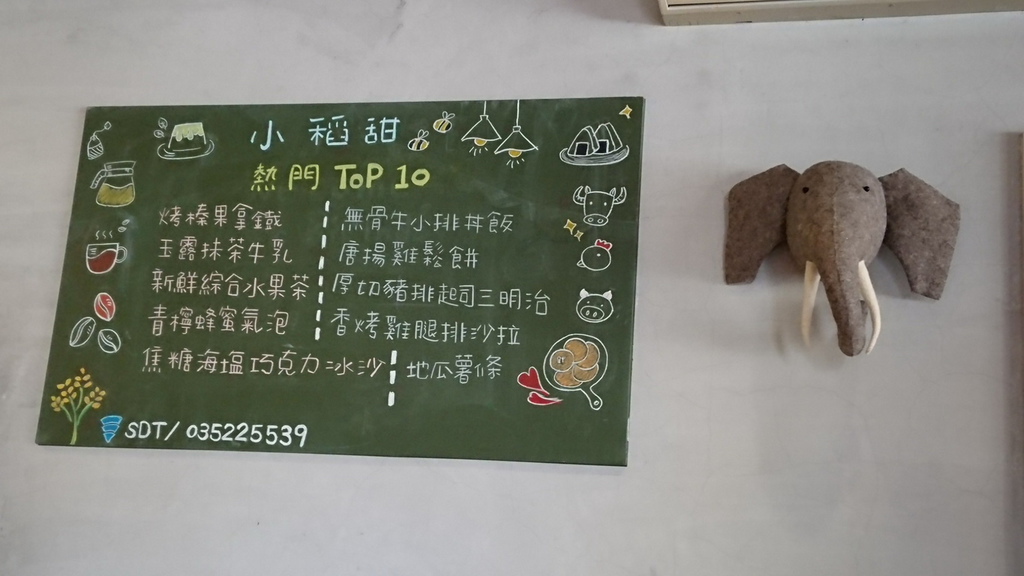 小稻甜
熱門 ToP 10
烤榛果拿鐵
玉露抹茶牛乳
新鮮綜合水果茶
青檸蜂蜜氣泡
焦糖海塩巧克力冰沙
無骨牛小排丼飯
唐揚雞鬆餅
厚切豬排起司三明治
香烤雞腿排沙拉
地瓜薯條
SDT/ 035225539